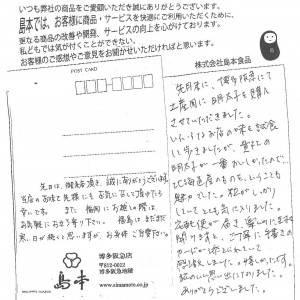 いつも弊社の商品をご愛顧いただき誠にありがとうございます。
島本では、お客様に商品・サービスを快適にご利用いただくために、
更なる商品の改善や開発、サービスの向上を心がけております。
私どもでは気が付くことができない、
お客様のご感想やご意見をお聞かせいただければと思います。
株式会社島本食品
POST CARD
先日は、御来店頂き、誠にありがとうございます。
当店のお味を先様にも気に召して頂けたら
幸いです。また福岡にお越しの際は、
お気軽にお立ち寄り下さい。福島はまだまだ
寒い日が続くと思いますが、お体ご自愛下さい。
島本
博多阪急店
〒812-0012
博多阪急地階
www.simamoto.co.jp
先月末に、博多阪急にて
土産用に明太子を購入
させていただきました。
いろいろなお店の味を試食
して歩きましたが、貴社の
明太子が一番おいしかったので、
北海道産のものを、ということも
粒がしっかり
してとても気に入りました。
宅配便が届き、楽しみに箱を
開けますと、ご丁寧に手書きの
カードが添えられていて
感激しました。
ありがとうございました。